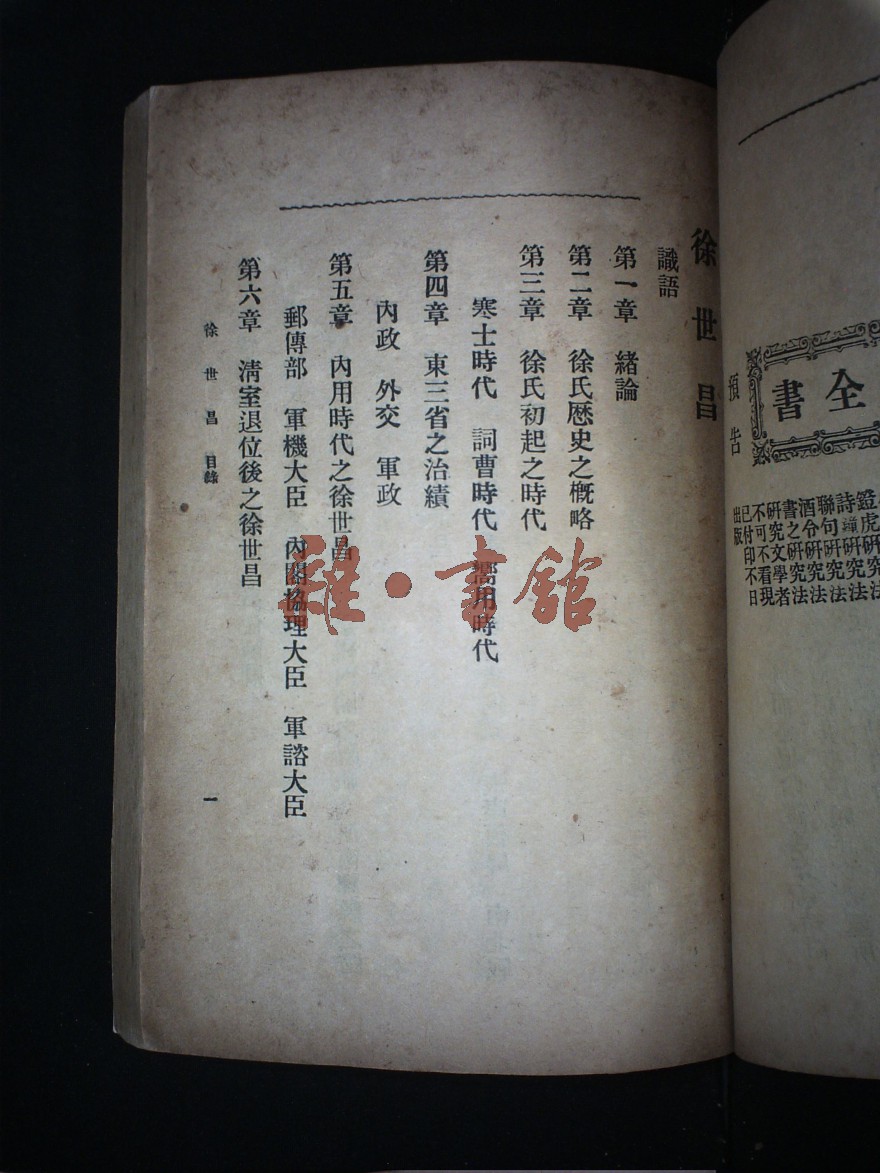 全書
預告
鐙虎研究法
詩鐘研究法
聯句研究法
酒令研究法
書之研究法
研究文學者
不可不看現
已付印不日
出版
徐世昌
識語
第一章　緒論
第二章　徐氏歷史之概略
第三章　徐氏初起之時代
寒士時代　詞曹時代　嚮用時代
第四章　東三省之治績
內政　外交　軍政
第五章　內用時代之徐世昌
郵傳部　軍機大臣　內閣協理大臣　軍諮大臣
第六章　淸室退位後之徐世昌
徐世昌　目錄
一
雜·書館